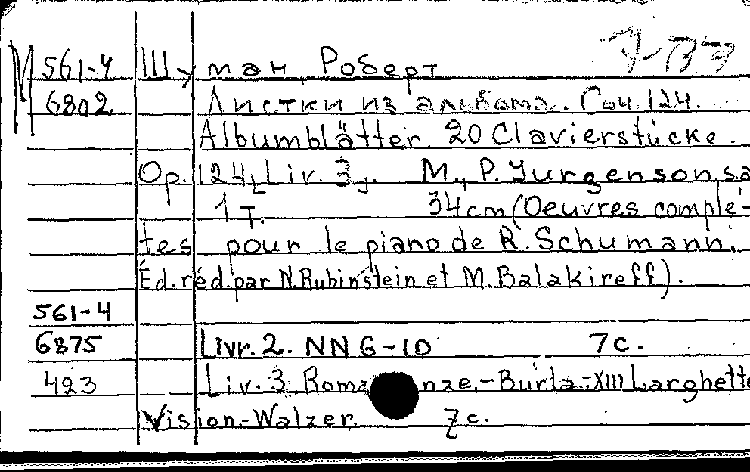 М 561-4 Шуман, Роберт
6802 Листки из альбома. Соч. 124.
Albumblätter. 20 Clavierstücke.
Op. 124, Liv. 3, . M., P. Jurgenson, sa
1 т. 34cm (Oeuvres complè-
tes pour le piano de R. Schumann.
Éd. réd. par N. Rubinstein et M. Balakireff).
561-4
6875 Livr. 2. NN 6-10 7c.
423 Liv. 3 Roma nze.-Burla-XIII Larghette
Vision-Walzer. 7c.